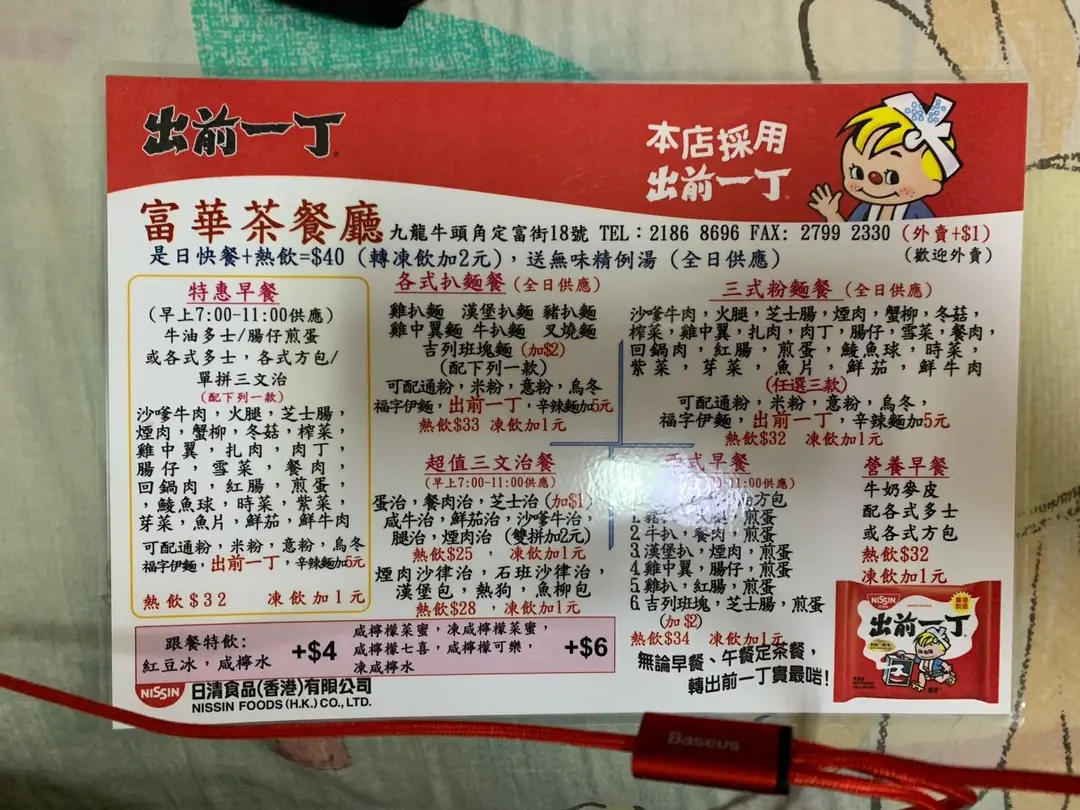 出前一丁
本店採用
出前一丁
富華茶餐廳 九龍牛頭角定富街18號 TEL：2186 8696 FAX: 2799 2330 (外賣+$1)
是日快餐+熱飲=$40 (轉凍飲加2元)，送無味精例湯 (全日供應) (歡迎外賣)
特惠早餐
(早上7:00-11:00供應)
牛油多士/腸仔煎蛋
或各式多士，各式方包/
單拼三文治
(配下列一款)
沙嗲牛肉，火腿，芝士腸，
煙肉，蟹柳，冬菇，榨菜，
雞中翼，扎肉，肉丁，
腸仔，雪菜，餐肉，
回鍋肉，紅腸，煎蛋，
，鯪魚球，時菜，紫菜，
芽菜，魚片，鮮茄，鮮牛肉
可配通粉，米粉，意粉，烏冬
福字伊麵，出前一丁，辛辣麵加5元
熱飲$32 凍飲加1元
各式扒麵餐 (全日供應)
雞扒麵 漢堡扒麵 豬扒麵
雞中翼麵 牛扒麵 叉燒麵
吉列班塊麵 (加$2)
(配下列一款)
可配通粉，米粉，意粉，烏冬
福字伊麵，出前一丁，辛辣麵加5元
熱飲$33 凍飲加1元
三式粉麵餐 (全日供應)
沙嗲牛肉，火腿，芝士腸，煙肉，蟹柳，冬菇，
榨菜，雞中翼，扎肉，肉丁，腸仔，雪菜，餐肉，
回鍋肉，紅腸，煎蛋，鯪魚球，時菜，
紫菜，芽菜，魚片，鮮茄，鮮牛肉
(任選三款)
可配通粉，米粉，意粉，烏冬，
福字伊麵，出前一丁，辛辣麵加5元
熱飲$32 凍飲加1元
超值三文治餐
(早上7:00-11:00供應)
蛋治，餐肉治，芝士治 (加$1)
咸牛治，鮮茄治，沙嗲牛治，
腿治，煙肉治 (雙拼加2元)
熱飲$25 ，凍飲加1元
煙肉沙律治，石班沙律治，
漢堡包，熱狗，魚柳包
熱飲$28 ，凍飲加1元
式早餐
-11:00供應)
方包
1. 煎蛋
2. 牛扒，餐肉，煎蛋
3. 漢堡扒，煙肉，煎蛋
4. 雞中翼，腸仔，煎蛋
5. 雞扒，紅腸，煎蛋
6. 吉列班塊，芝士腸，煎蛋
(加$2)
熱飲$34 凍飲加1元
營養早餐
牛奶麥皮
配各式多士
或各式方包
熱飲$32
凍飲加1元
跟餐特飲：
紅豆冰，咸檸水
+$4
咸檸檬菜蜜，凍咸檸檬菜蜜，
咸檸檬七喜，咸檸檬可樂，
凍咸檸水
+$6
無論早餐、午餐定茶餐，
轉出前一丁貴最啱!
NISSIN
日清食品(香港)有限公司
NISSIN FOODS (H.K.) CO., LTD.
NISSIN
出前一丁
Baseus